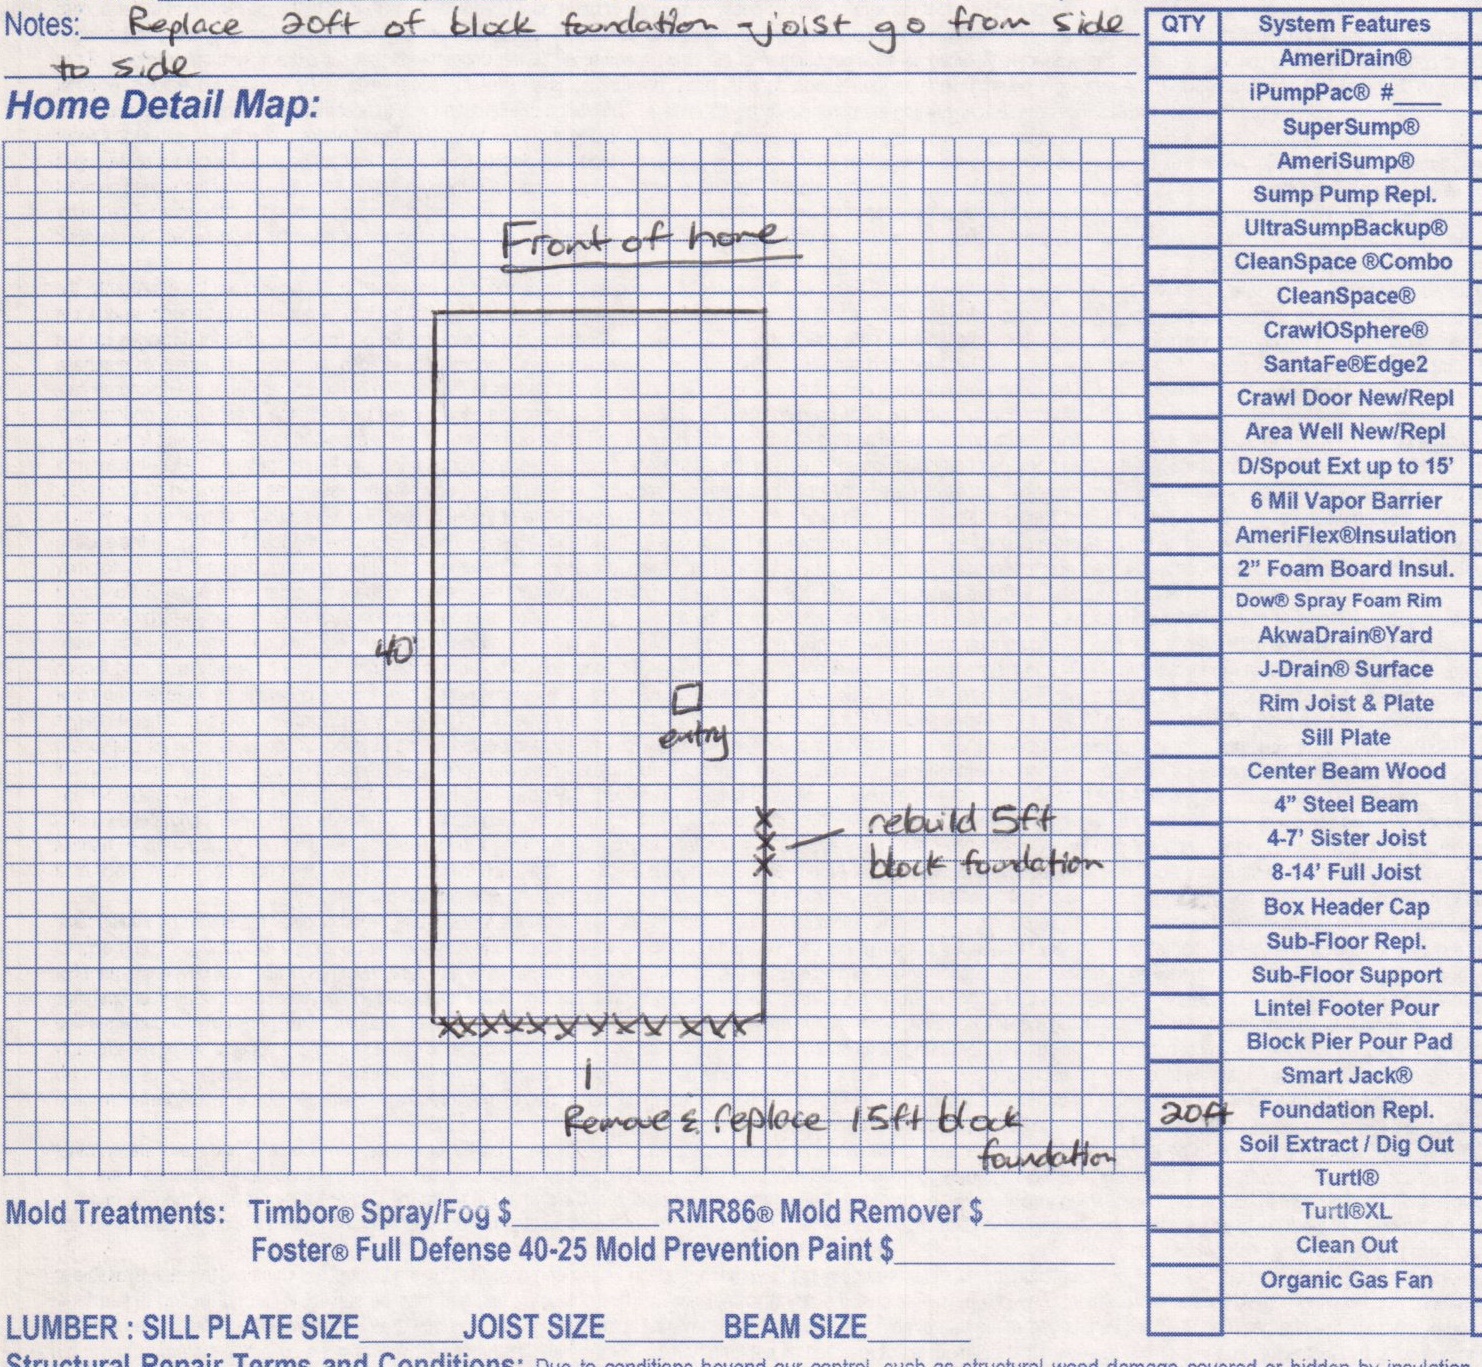 Notes: Replace 20ft of block foundation - joist go from side
to side
Home Detail Map:
Front of home
40'
entry
rebuild 5ft
block foundation
Remove & replace 15ft block
foundation
QTY System Features
AmeriDrain®
iPumpPac® #____
SuperSump®
AmeriSump®
Sump Pump Repl.
UltraSumpBackup®
CleanSpace ®Combo
CleanSpace®
CrawlOSphere®
SantaFe®Edge2
Crawl Door New/Repl
Area Well New/Repl
D/Spout Ext up to 15'
6 Mil Vapor Barrier
AmeriFlex®Insulation
2” Foam Board Insul.
Dow® Spray Foam Rim
AkwaDrain®Yard
J-Drain® Surface
Rim Joist & Plate
Sill Plate
Center Beam Wood
4” Steel Beam
4-7' Sister Joist
8-14' Full Joist
Box Header Cap
Sub-Floor Repl.
Sub-Floor Support
Lintel Footer Pour
Block Pier Pour Pad
Smart Jack®
20ft Foundation Repl.
Soil Extract / Dig Out
Turtl®
Turtl®XL
Clean Out
Organic Gas Fan
Mold Treatments: Timbor® Spray/Fog $__________ RMR86® Mold Remover $__________
Foster® Full Defense 40-25 Mold Prevention Paint $__________
LUMBER : SILL PLATE SIZE_______JOIST SIZE________BEAM SIZE_______
Structural Repair Terms and Conditions: Due to conditions beyond our control, such as structural wood damage covered or hidden by insulation